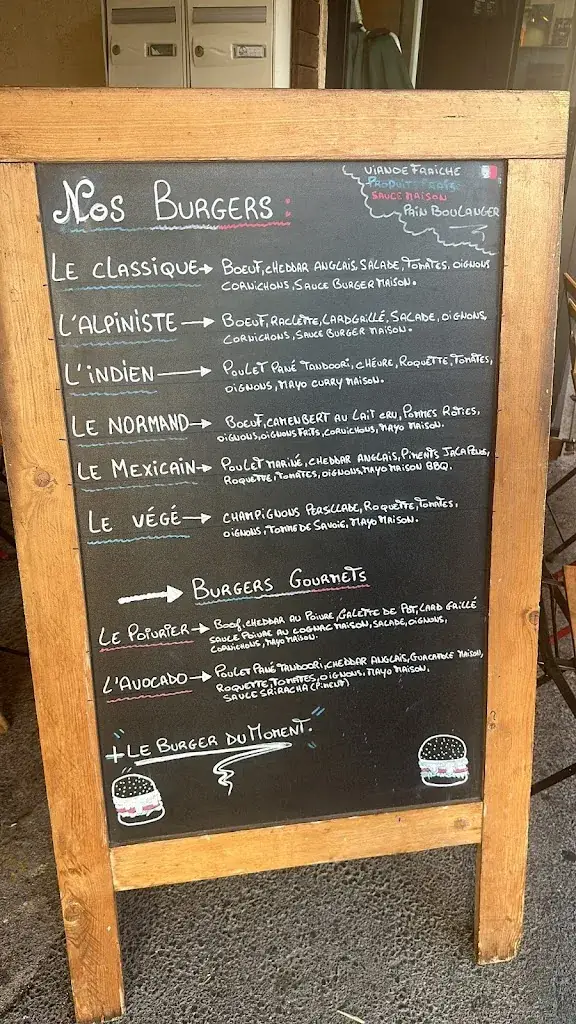 VIANDE FRAÎCHE
PRODUITS FRAIS
SAUCE MAISON
PAIN BOULANGER
NOS BURGERS :
LE CLASSIQUE → BOEUF, CHEDDAR ANGLAIS, SALADE, TOMATES, OIGNONS
CORNICHONS, SAUCE BURGER MAISON.
L'ALPINISTE → BOEUF, RACLETTE, LARD GRILLÉ, SALADE, OIGNONS,
CORNICHONS, SAUCE BURGER MAISON.
L'INDIEN → POULET PANÉ TANDOORI, CHÈVRE, ROQUETTE, TOMATES,
OIGNONS, MAYO CURRY MAISON.
LE NORMAND → BOEUF, CAMENBERT AU LAIT CRU, POMMES RÔTIES,
OIGNONS, OIGNONS FRITS, CORNICHONS, MAYO MAISON.
LE MEXICAIN → POULET MARINÉ, CHEDDAR ANGLAIS, PIMENTS JALAPENS,
ROQUETTE, TOMATES, OIGNONS, MAYO MAISON BBQ.
LE VÉGÉ → CHAMPIGNONS PERSILLADE, ROQUETTE, TOMATES,
OIGNONS, TOMME DE SAVOIE, MAYO MAISON.
→ BURGERS GOURMETS
LE POIVRIER → BOEUF, CHEDDAR AU POIVRE, GALETTE DE PDT, LARD GRILLÉ
SAUCE POIVRE AU COGNAC MAISON, SALADE, OIGNONS,
CORNICHONS, MAYO MAISON.
L'AVOCADO → POULET PANÉ TANDOORI, CHEDDAR ANGLAIS, GUACAMOLE MAISON,
ROQUETTE, TOMATES, OIGNONS, MAYO MAISON.
SAUCE SRIRACHA (PIMENT)
+ LE BURGER DU MOMENT.